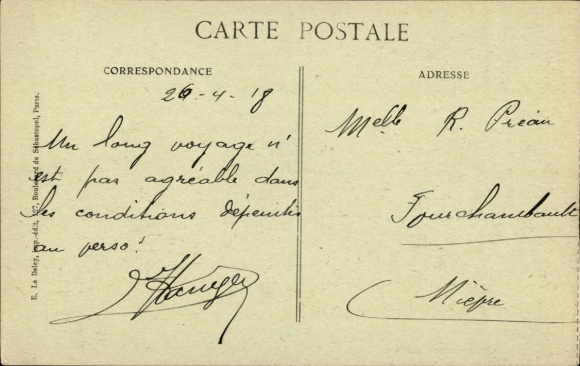 CARTE POSTALE
CORRESPONDANCE
26-4-18
Un long voyage n'
est pas agréable dans
les conditions dépeintes
au verso!
ADRESSE
Melle R. Préau
Fourchambault
(Nièvre
E. Le Deley, imp.-édit., 127, Boulevard de Sébastopol, Paris.